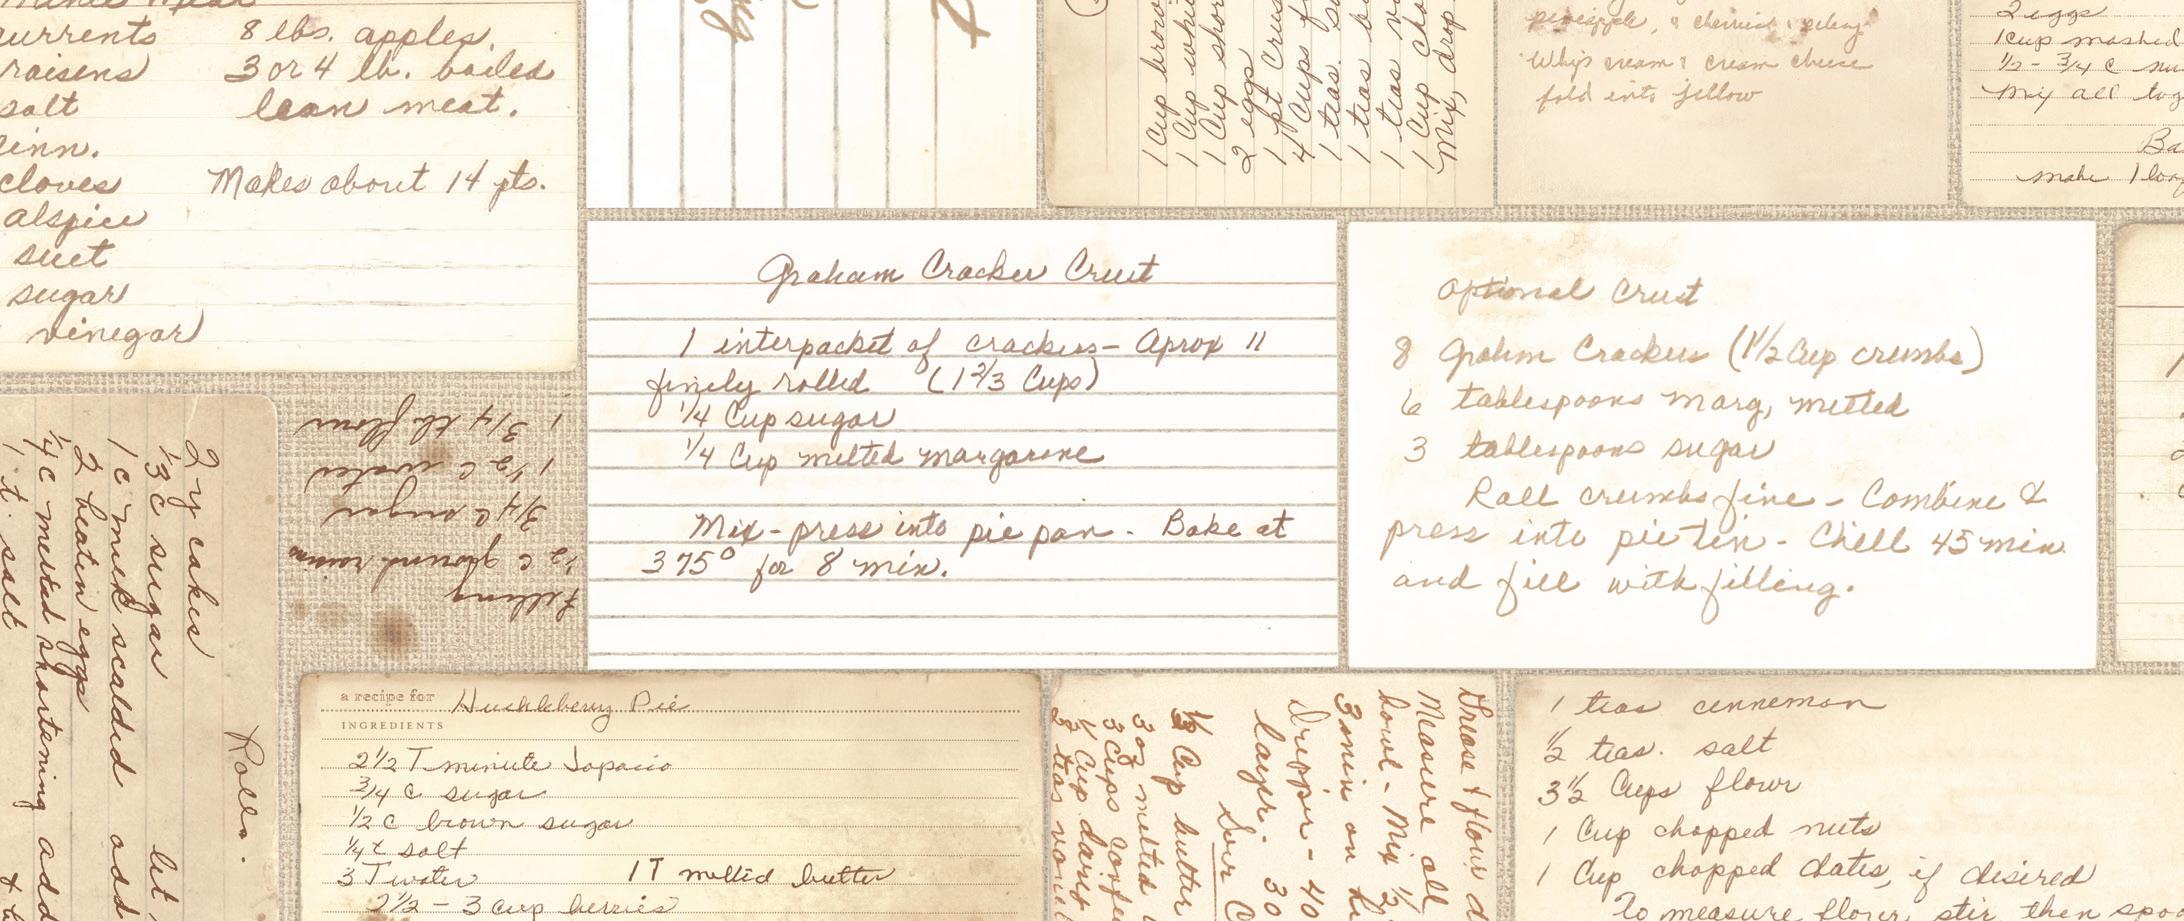 Mince Meat
currents 8 lbs. apples.
raisens 3 or 4 lb. boiled
salt lean meat.
cinn.
cloves Makes about 14 pts.
alspice
suet
sugar
vinegar
1 Cup brow
1 Cup whi
1 Cup shor
2 eggs
1 pt Crus
4 Cups f
1 teas. so
1 teas ba
1 teas va
1 Cup cho
Mix, drop
pineapple, & cherries & celery
Whip cream & cream cheese
fold into jellow
2 eggs
1 cup mashed
1/2 - 3/4 c
Mix all tog
Ba
make 1 loa
Graham Cracker Crust
1 interpacket of crackers - Aprox 11
finely rolled (1 2/3 Cups)
1/4 Cup sugar
1/4 Cup melted margarine
Mix - press into pie pan - Bake at
375° for 8 min.
Optional Crust
8 Graham Crackers (1 1/2 Cup crumbs)
6 tablespoons marg, melted
3 tablespoons sugar
Roll crumbs fine - Combine &
press into pie tin - Chill 45 min
and fill with filling.
Rolls.
2 y cakes
1/3 c sugar let
1 c milk scalded add
2 beaten eggs
1/4 c melted shortening add
1 t. salt
Filling
1/2 c ground raisins
3/4 c sugar
1 1/2 c water
1 3/4 tb flour
a recipe for Huckleberry Pie
INGREDIENTS
2 1/2 T minute Tapacio
3/4 c sugar
1/2 c brown sugar
1/4 t salt
3 T water 1 T melted butter
2 1/2 - 3 cup berries
Grease & flour
Measure all
bowl - Mix 1/2
3 min on hi
Dripper - 40
layer - 30
Sour C
1/3 Cup butter
3 oz melted
3 Cups confe
1/2 Cup dairy
2 teas vanil
1 teas cinnemon
1/2 teas. salt
3 1/2 Cups flour
1 Cup chopped nuts
1 Cup chopped dates, if desired
To measure flour, stir then spo